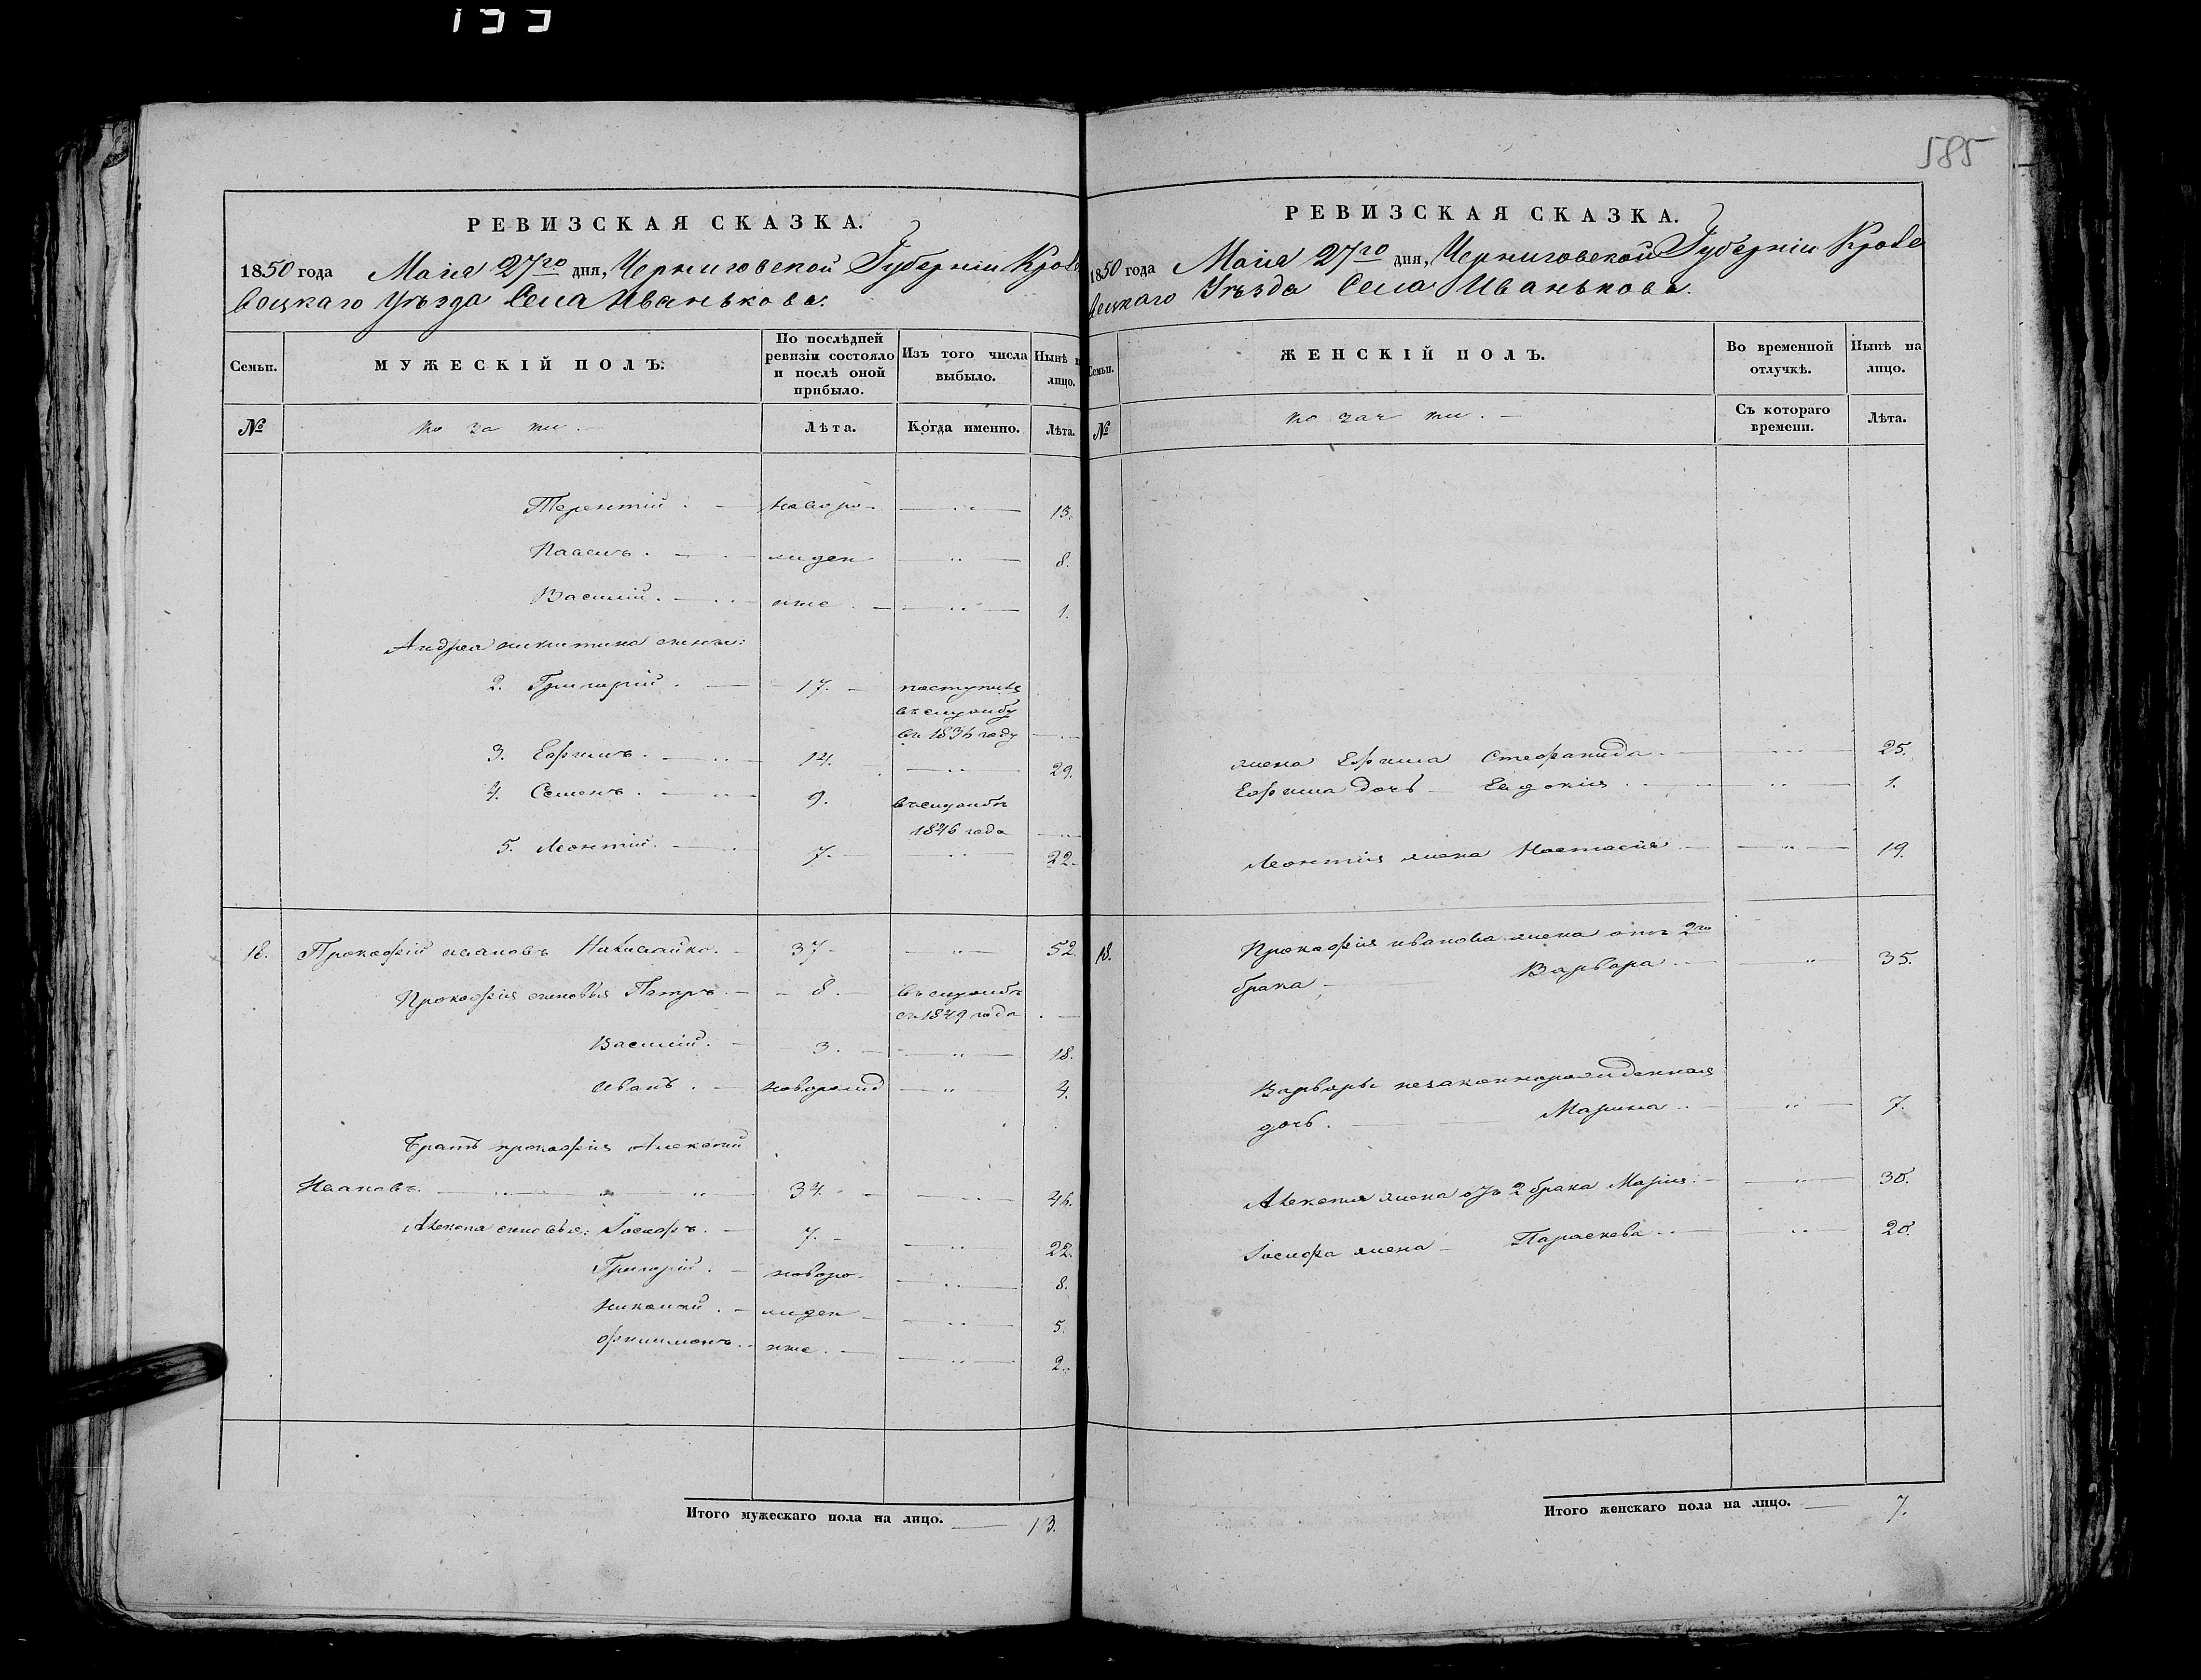 585
РЕВИЗСКАЯ СКАЗКА.
1850 года Маія 27го дня, Черниговской Губерніи Кроле
вецкаго Уѣзда Села Иванькова.
Семьи.
МУЖЕСКІЙ ПОЛЪ.
По послѣдней ревизіи состояло и послѣ оной прибыло.
Изъ того числа выбыло.
Нынѣ на лицо.
№
козаки.
Лѣта.
Когда именно.
Лѣта.
Терентій. новоро- 13.
Павелъ. жден 8.
Василій. ные. 1.
Андрея никитина сыны:
2. Григорій. 17. поступилъ
въ службу
въ 1834 году
3. Ефимъ. 14. 29.
4. Семенъ. 9. въ службѣ
1846 года
5. Леонтій. 7. 22.
18. Прокофій ивановъ 37. 52.
Прокофія сыновья Петръ. 8. въ службѣ
съ 1849 года
Василій. 3. 18.
иванъ. новорожд 4.
Братъ прокофія Алексѣй
Ивановъ. 34.
Алексѣя сыновья: Іосифъ. 7. 22.
Григорій. новоро- 8.
Николай. жден 5.
филимонъ. ные. 2.
Итого мужескаго пола на лицо. 13.
РЕВИЗСКАЯ СКАЗКА.
1850 года Маія 27го дня, Черниговской Губерніи Кроле
вецкаго Уѣзда Села Иванькова.
Семьи.
ЖЕНСКІЙ ПОЛЪ.
Во временной отлучкѣ.
Нынѣ на лицо.
№
козачки.
Съ котораго времени.
Лѣта.
жена Ефима Стефанида. 25.
Ефима дочь Евдокія. 1.
Леонтія жена Настасія 19.
18. Прокофія иванова жена отъ 2го
брака Варвара. 35.
Варвары незаконнорожденная
дочь. Марина 7.
Алексѣя жена отъ 2 брака Марія. 30.
Іосифа жена Параскева 20.
Итого женскаго пола на лицо. 7.